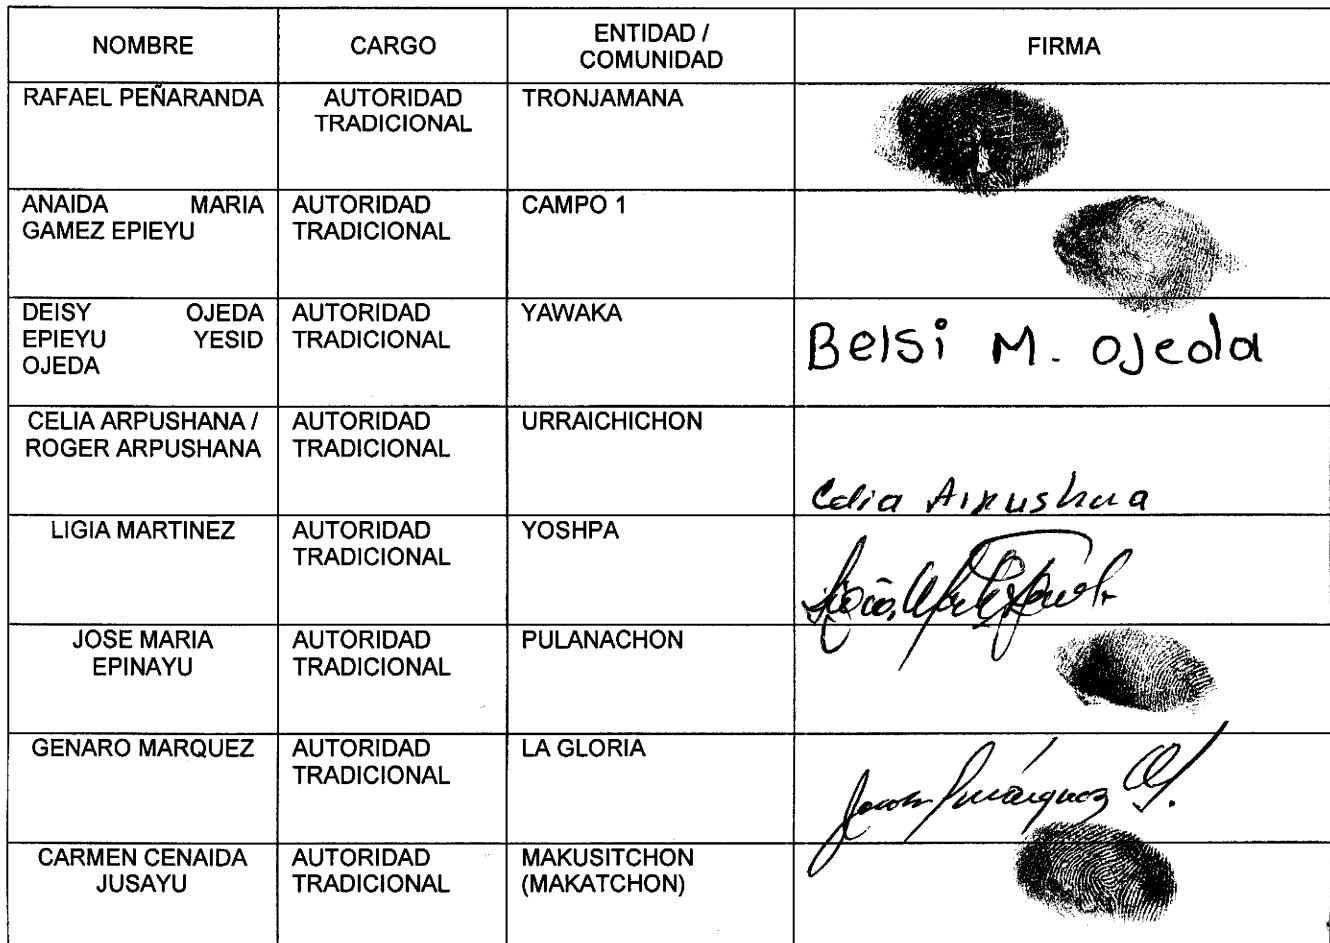 NOMBRE CARGO ENTIDAD / COMUNIDAD FIRMA
RAFAEL PEÑARANDA AUTORIDAD TRADICIONAL TRONJAMANA
ANAIDA MARIA GAMEZ EPIEYU AUTORIDAD TRADICIONAL CAMPO 1
DEISY OJEDA EPIEYU YESID OJEDA AUTORIDAD TRADICIONAL YAWAKA Belsi M. Ojeda
CELIA ARPUSHANA / ROGER ARPUSHANA AUTORIDAD TRADICIONAL URRAICHICHON Celia
LIGIA MARTINEZ AUTORIDAD TRADICIONAL YOSHPA
JOSE MARIA EPINAYU AUTORIDAD TRADICIONAL PULANACHON
GENARO MARQUEZ AUTORIDAD TRADICIONAL LA GLORIA
CARMEN CENAIDA JUSAYU AUTORIDAD TRADICIONAL MAKUSITCHON (MAKATCHON)